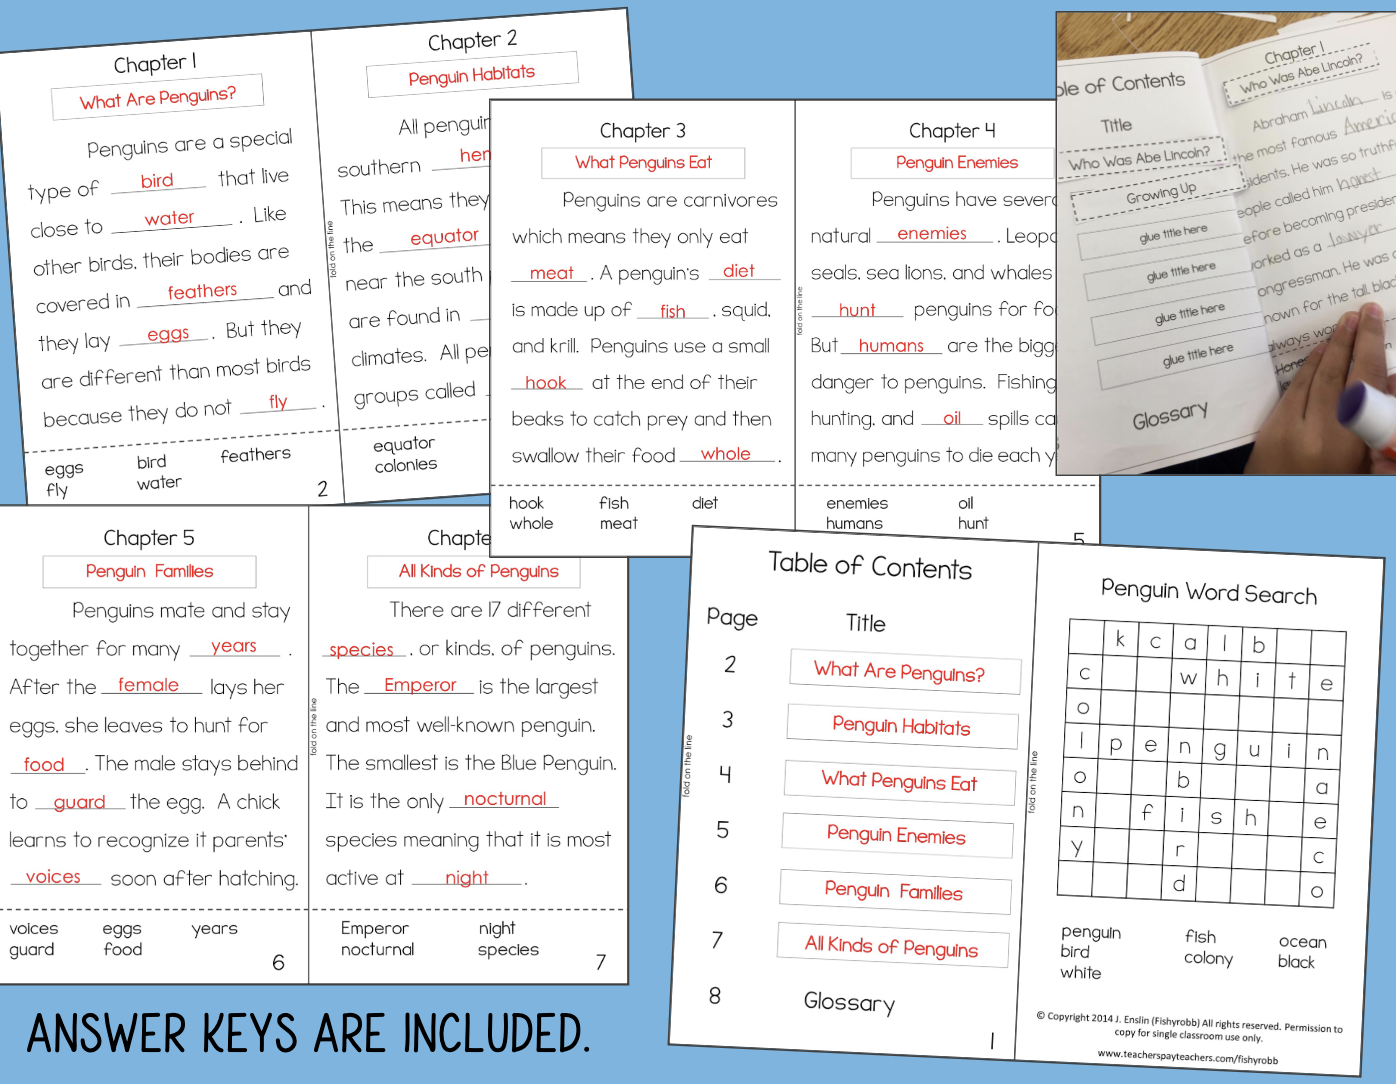 Chapter 1
What Are Penguins?
Penguins are a special
type of bird that live
close to water . Like
other birds, their bodies are
covered in feathers and
they lay eggs . But they
are different than most birds
because they do not fly .
eggs bird feathers
fly water
2
fold on the line
Chapter 2
Penguin Habitats
All penguin
southern hem
This means they
the equator
near the south
are found in
climates. All pe
groups called
equator
colonies
Chapter 3
What Penguins Eat
Penguins are carnivores
which means they only eat
meat . A penguin's diet
is made up of fish , squid,
and krill. Penguins use a small
hook at the end of their
beaks to catch prey and then
swallow their food whole .
hook fish diet
whole meat
fold on the line
Chapter 4
Penguin Enemies
Penguins have severa
natural enemies . Leopa
seals, sea lions, and whales
hunt penguins for fo
But humans are the bigg
danger to penguins. Fishing
hunting, and oil spills ca
many penguins to die each y
enemies oil
humans hunt
5
ble of Contents
Title
Who Was Abe Lincoln?
Growing Up
glue title here
glue title here
glue title here
glue title here
Glossary
Chapter 1
Who Was Abe Lincoln?
Abraham Lincoln is
the most famous Americ
sidents. He was so truthf
eople called him honest
efore becoming presiden
orked as a lawyer
ongressman. He was
nown for the tall, blac
always wor
Hones
Chapter 5
Penguin Families
Penguins mate and stay
together for many years .
After the female lays her
eggs, she leaves to hunt for
food . The male stays behind
to guard the egg. A chick
learns to recognize it parents'
voices soon after hatching.
voices eggs years
guard food
6
fold on the line
Chapte
All Kinds of Penguins
There are 17 different
species , or kinds, of penguins.
The Emperor is the largest
and most well-known penguin.
The smallest is the Blue Penguin.
It is the only nocturnal
species meaning that it is most
active at night .
Emperor night
nocturnal species
7
Table of Contents
Page Title
2 What Are Penguins?
3 Penguin Habitats
4 What Penguins Eat
5 Penguin Enemies
6 Penguin Families
7 All Kinds of Penguins
8 Glossary
1
fold on the line
fold on the line
Penguin Word Search
k c a l b
c w h i t e
o
l p e n g u i n
o b a
n f i s h e
y r c
d o
penguin fish ocean
bird colony black
white
© Copyright 2014 J. Enslin (Fishyrobb) All rights reserved. Permission to
copy for single classroom use only.
www.teacherspayteachers.com/fishyrobb
ANSWER KEYS ARE INCLUDED.